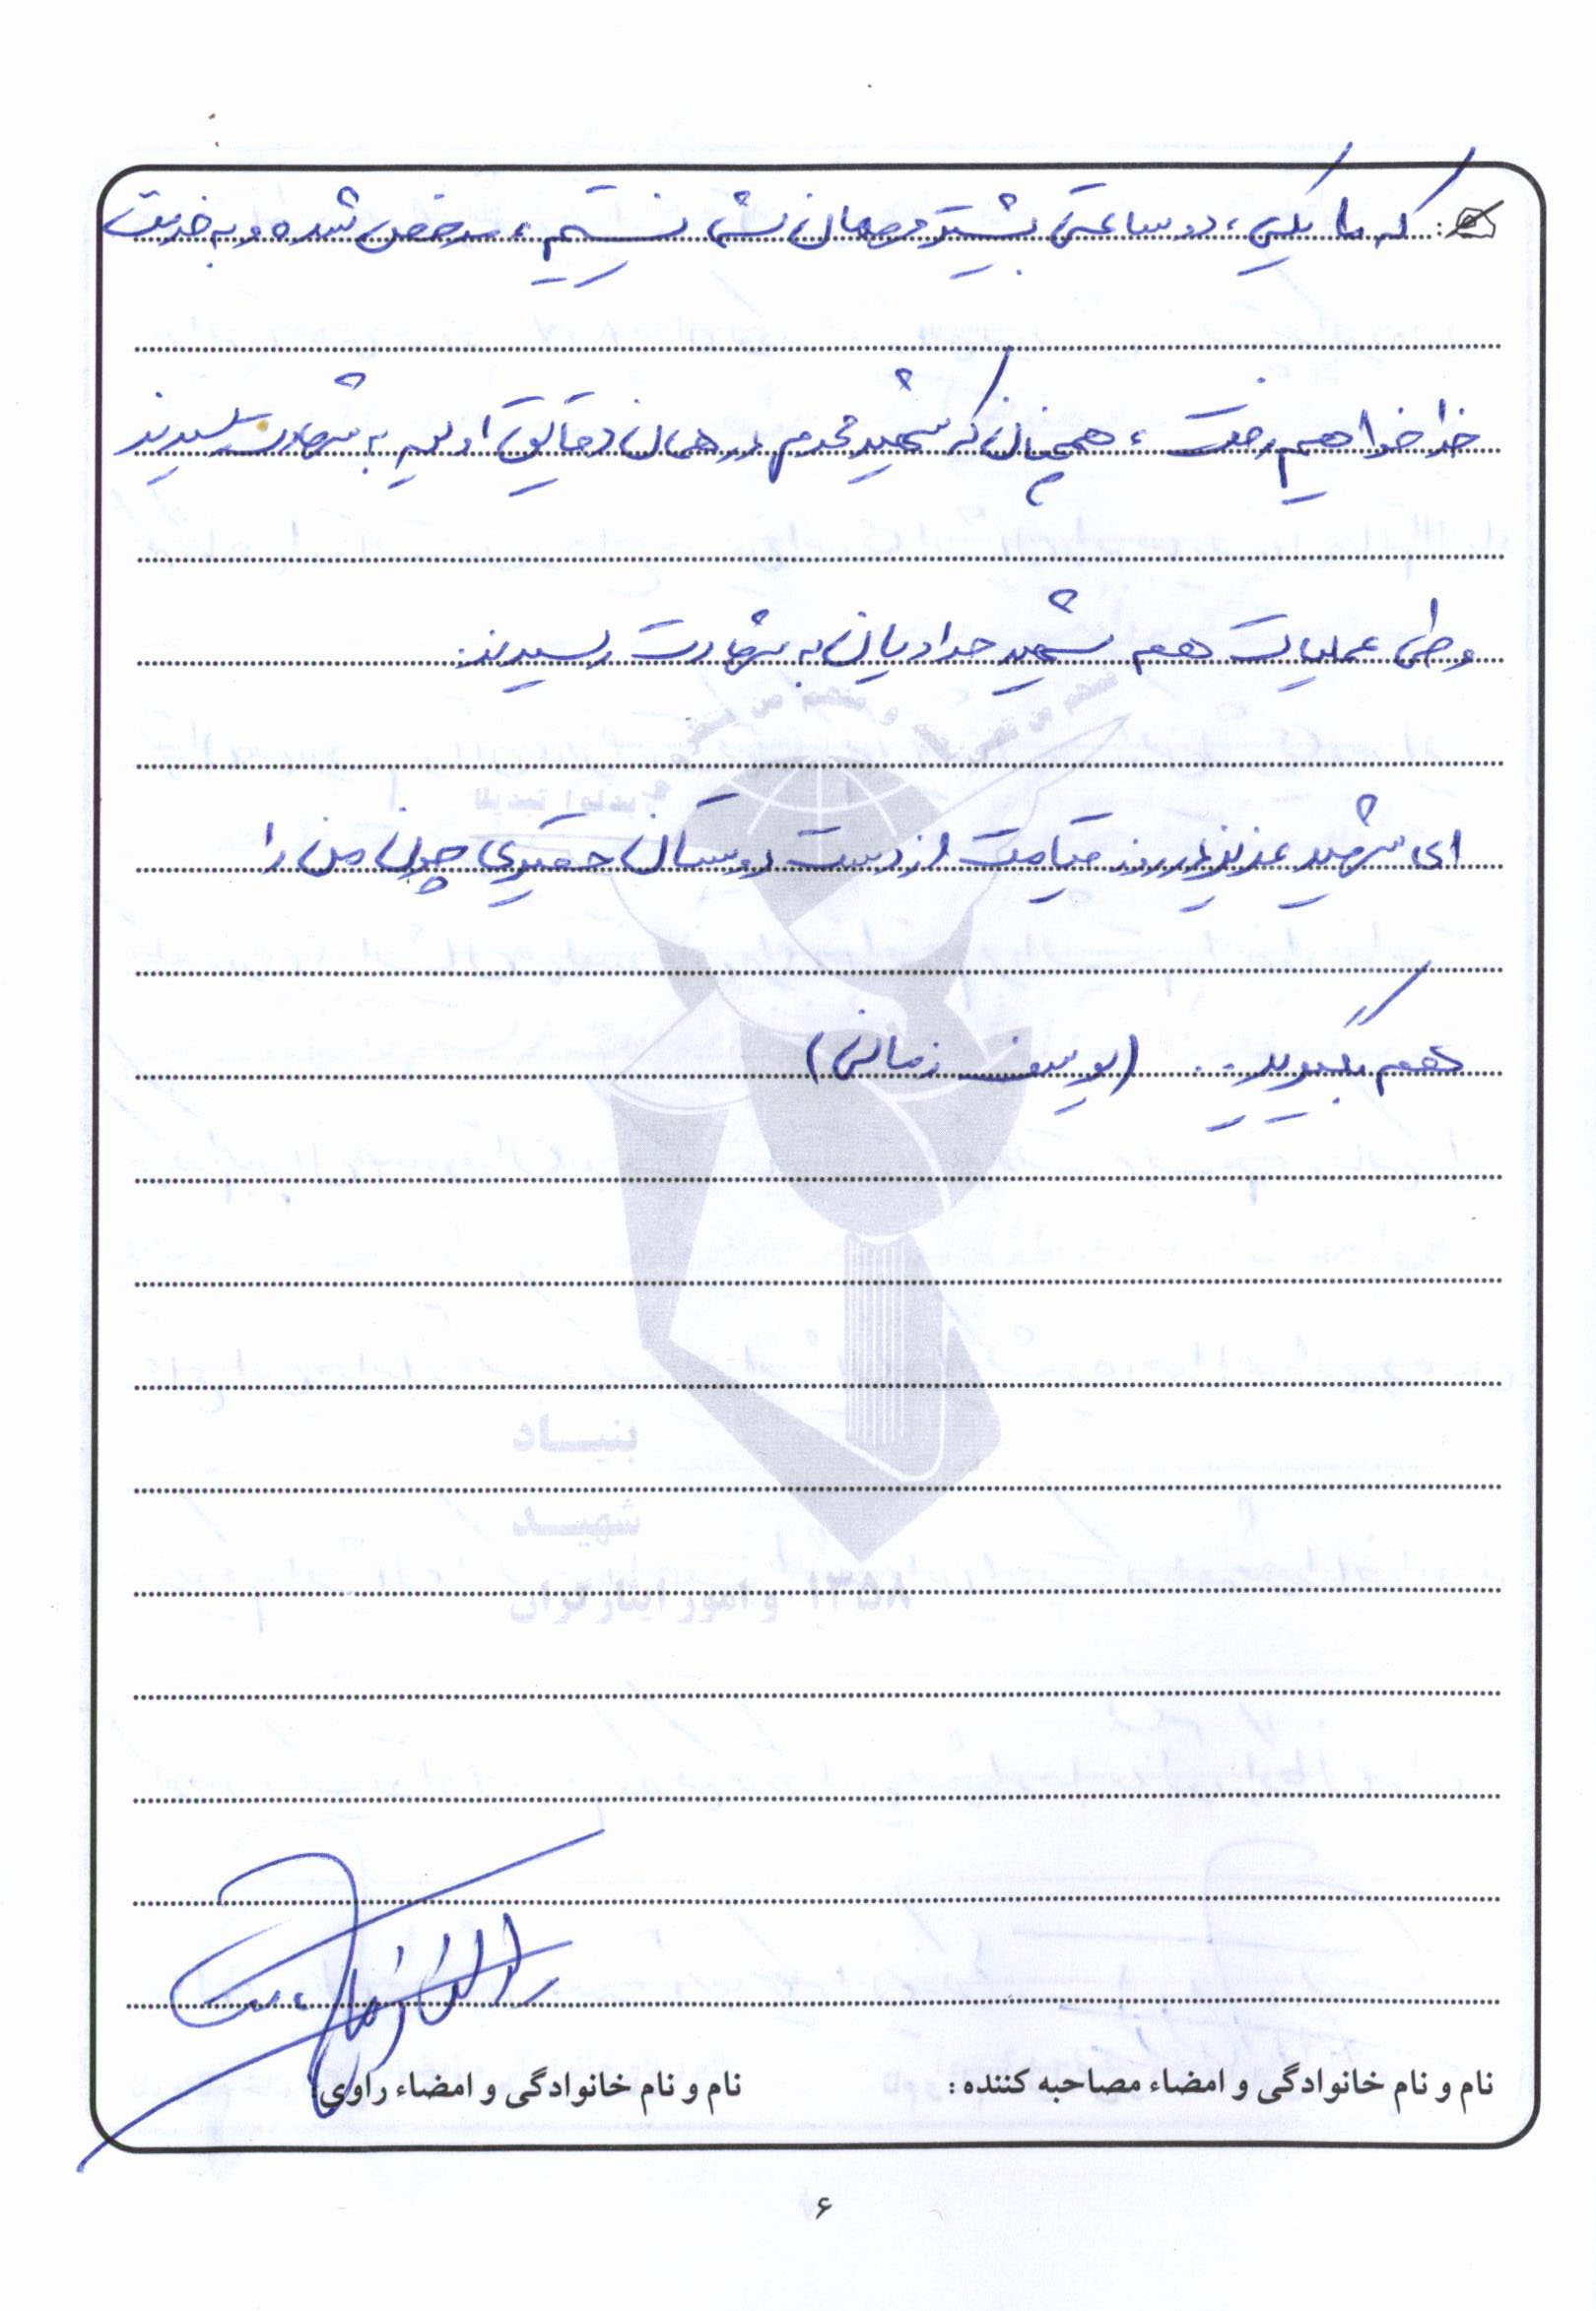 که ما یکی، دو ساعتی بیشتر مهمان نیستیم، مرخص شده و به خدمت
خدا خواهیم رفت، همچنان که شهید محرم در همان دقایق اولیه به شهادت رسیدند
وطی عملیات هم شهید حدادیان به شهادت رسیدند.
ای شهید عزیز در روز قیامت از دست دوستان حقیری چون من را
هم بگیرید.. (یوسف زمانی)
بنیاد
شهید
و امور ایثارگران ۱۳۵۸
نام و نام خانوادگی و امضاء مصاحبه کننده :
نام و نام خانوادگی و امضاء راوی:
۶